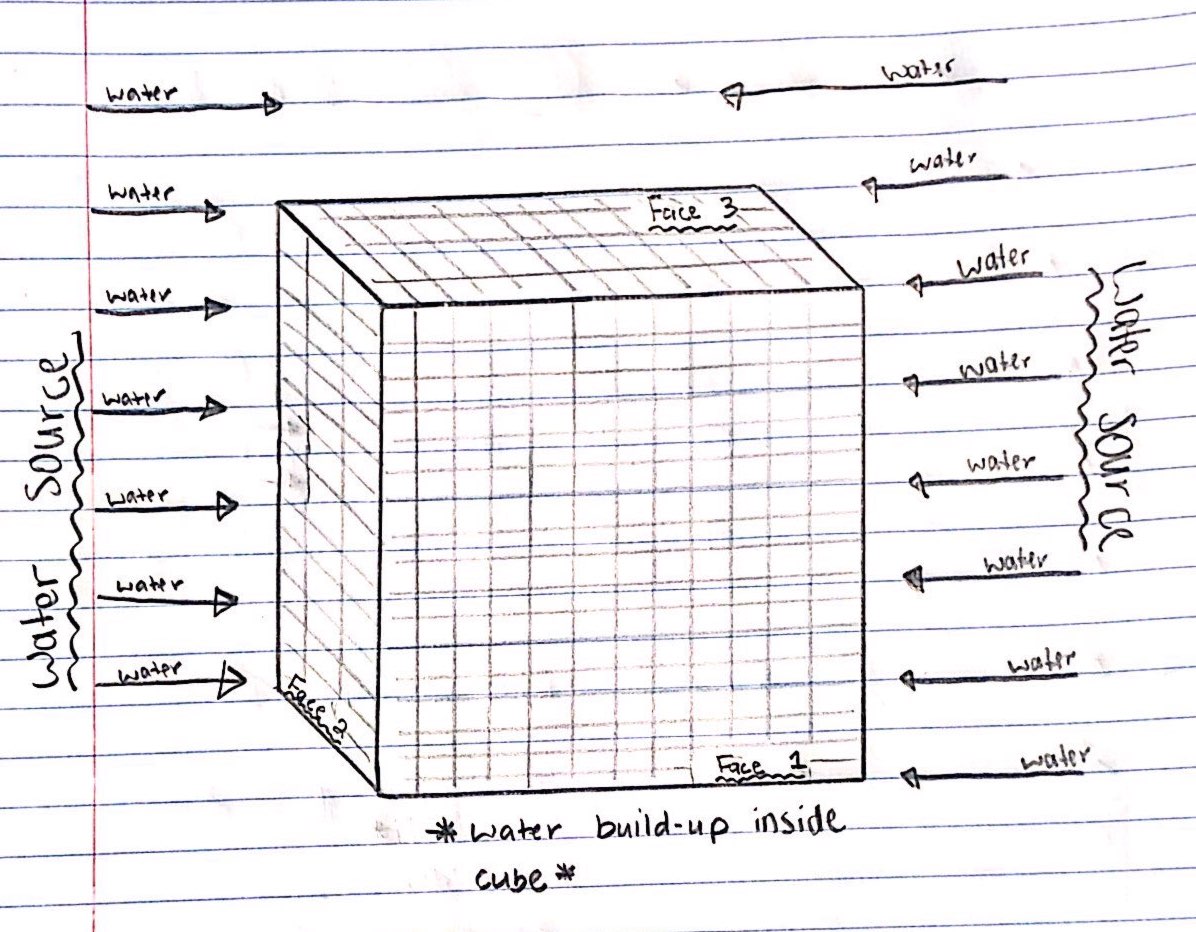 water
water
water
water
Face 3
water
water
water
water
water
water
water
water
water
water
water
water
water
Water Source
Water Source
Face 2
Face 1
*water build-up inside
cube*